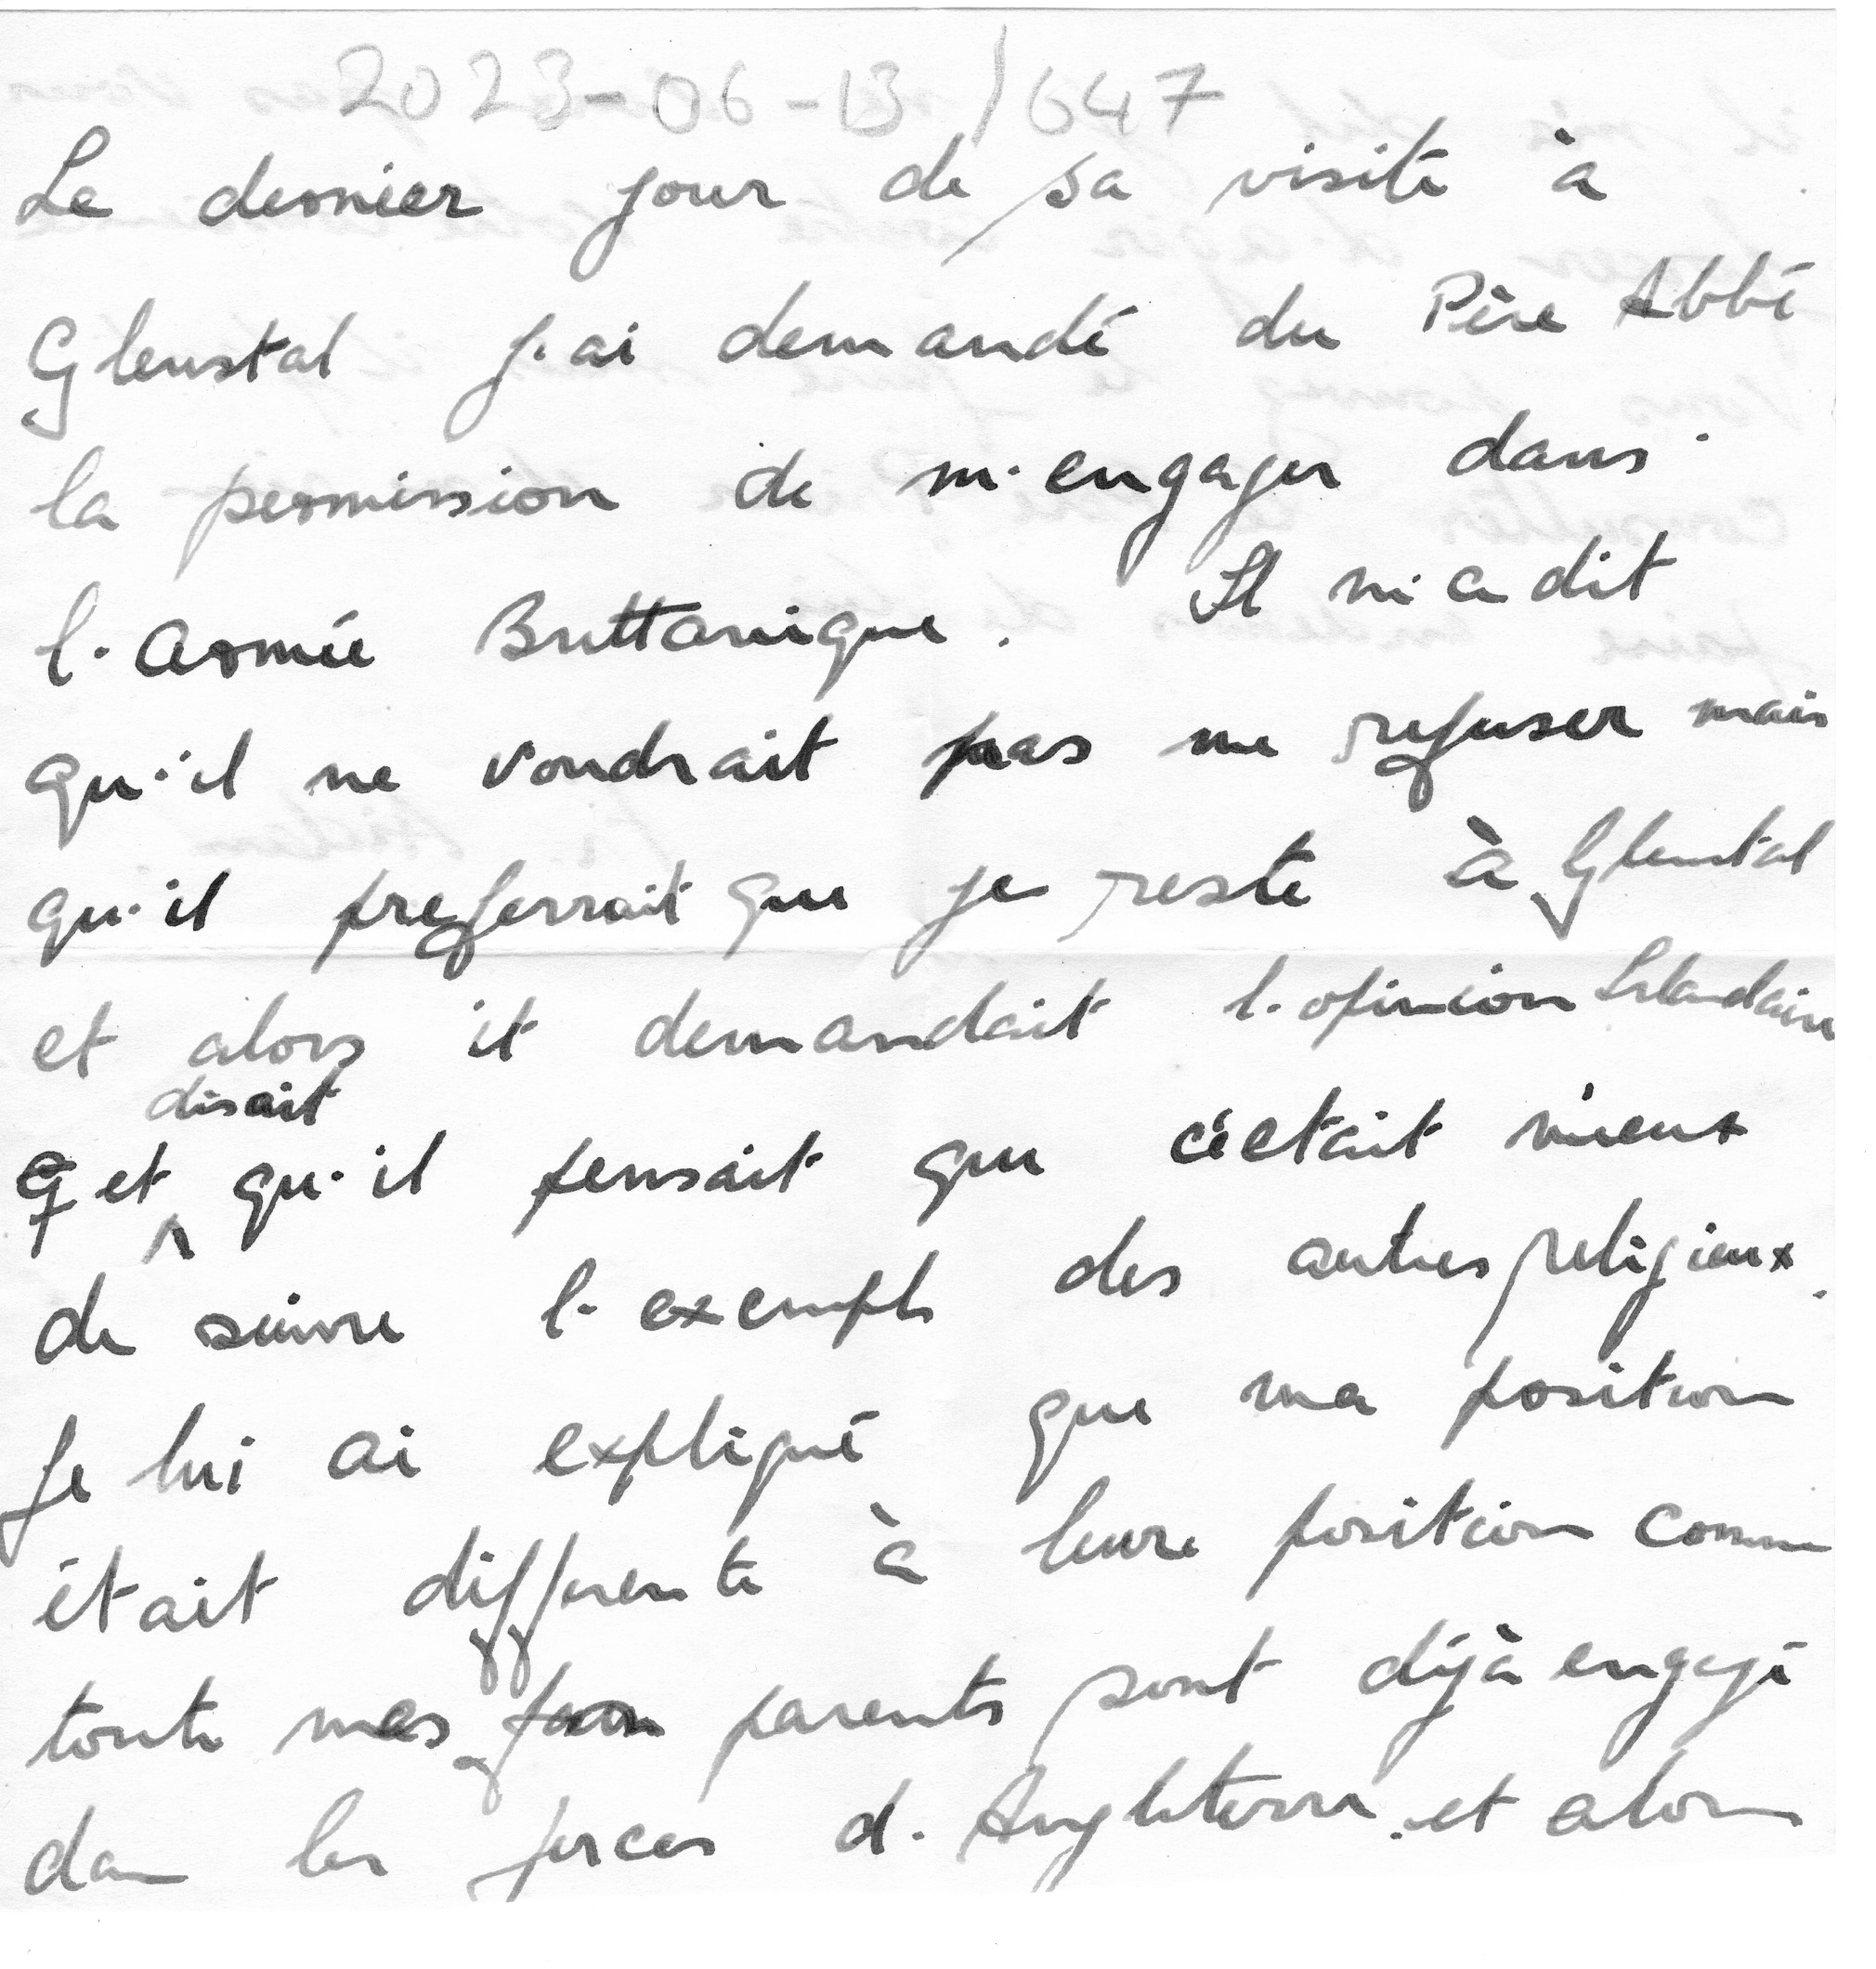 2023-06-13 / 647
Le dernier jour de sa visite à
Glenstal j'ai demandé du Père Abbé
la permission de m'engager dans
l'armée Brittanique. Il m'a dit
qu'il ne voudrait pas me refuser mais
qu'il preferrait que je reste à Glenstal
et alors il demandait l'opinion Irlandaise
disait
et qu'il pensait que c'était mieux
de suivre l'exemple des autres religieux.
Je lui ai expliqué que ma position
était differente à leure position comme
toute mes parents sont déjà engagé
dans les forces d'Angleterre et alors